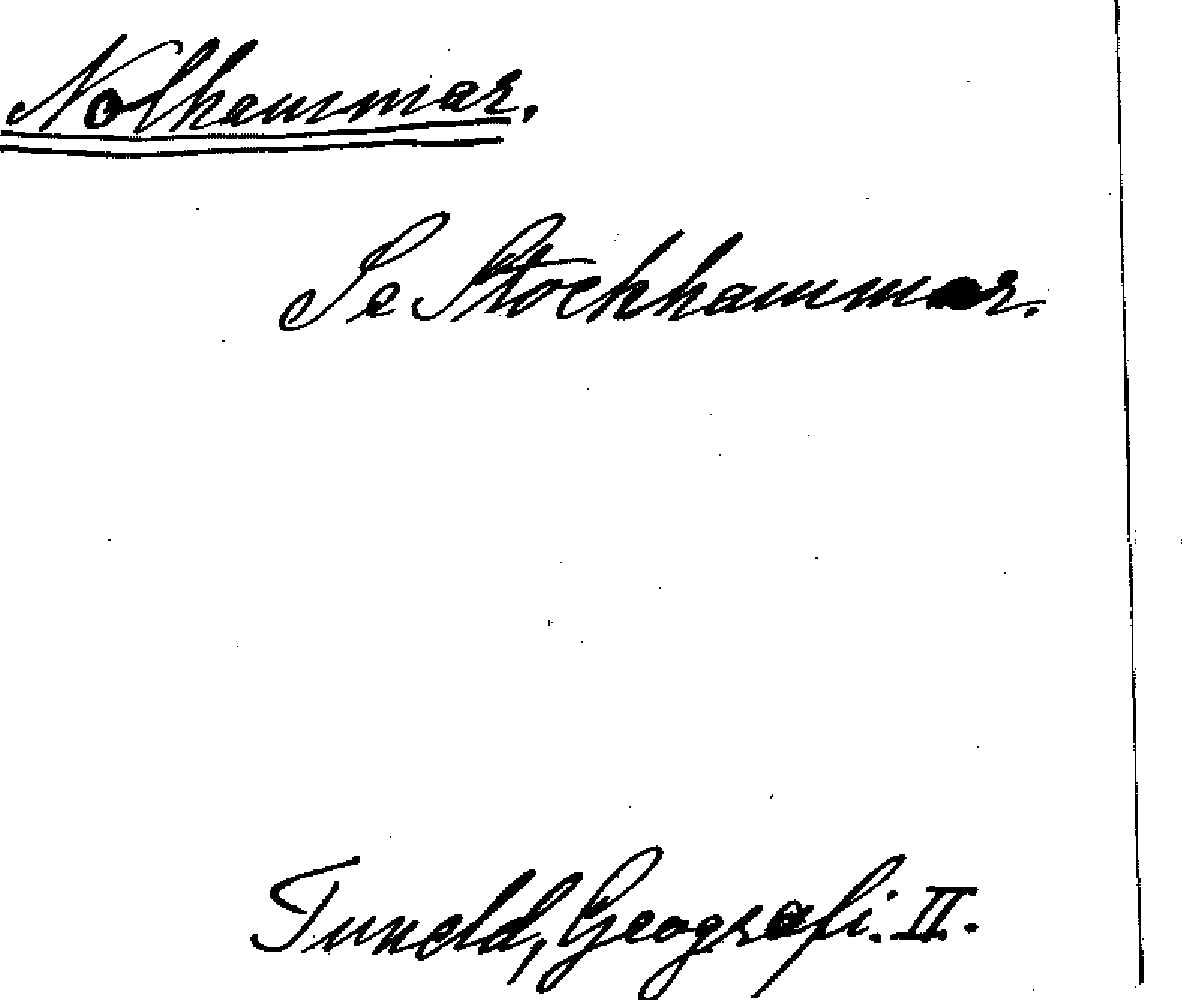 Nolhammar.
Se Stockhammar.
Tuneld, Geografi. II.